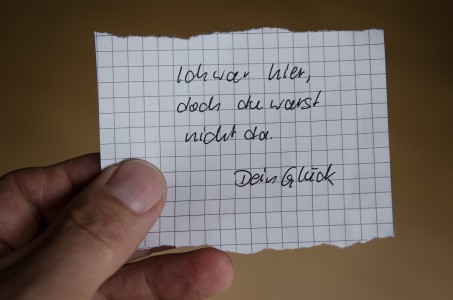 Ich war hier,
doch du warst
nicht da.
Dein Glück